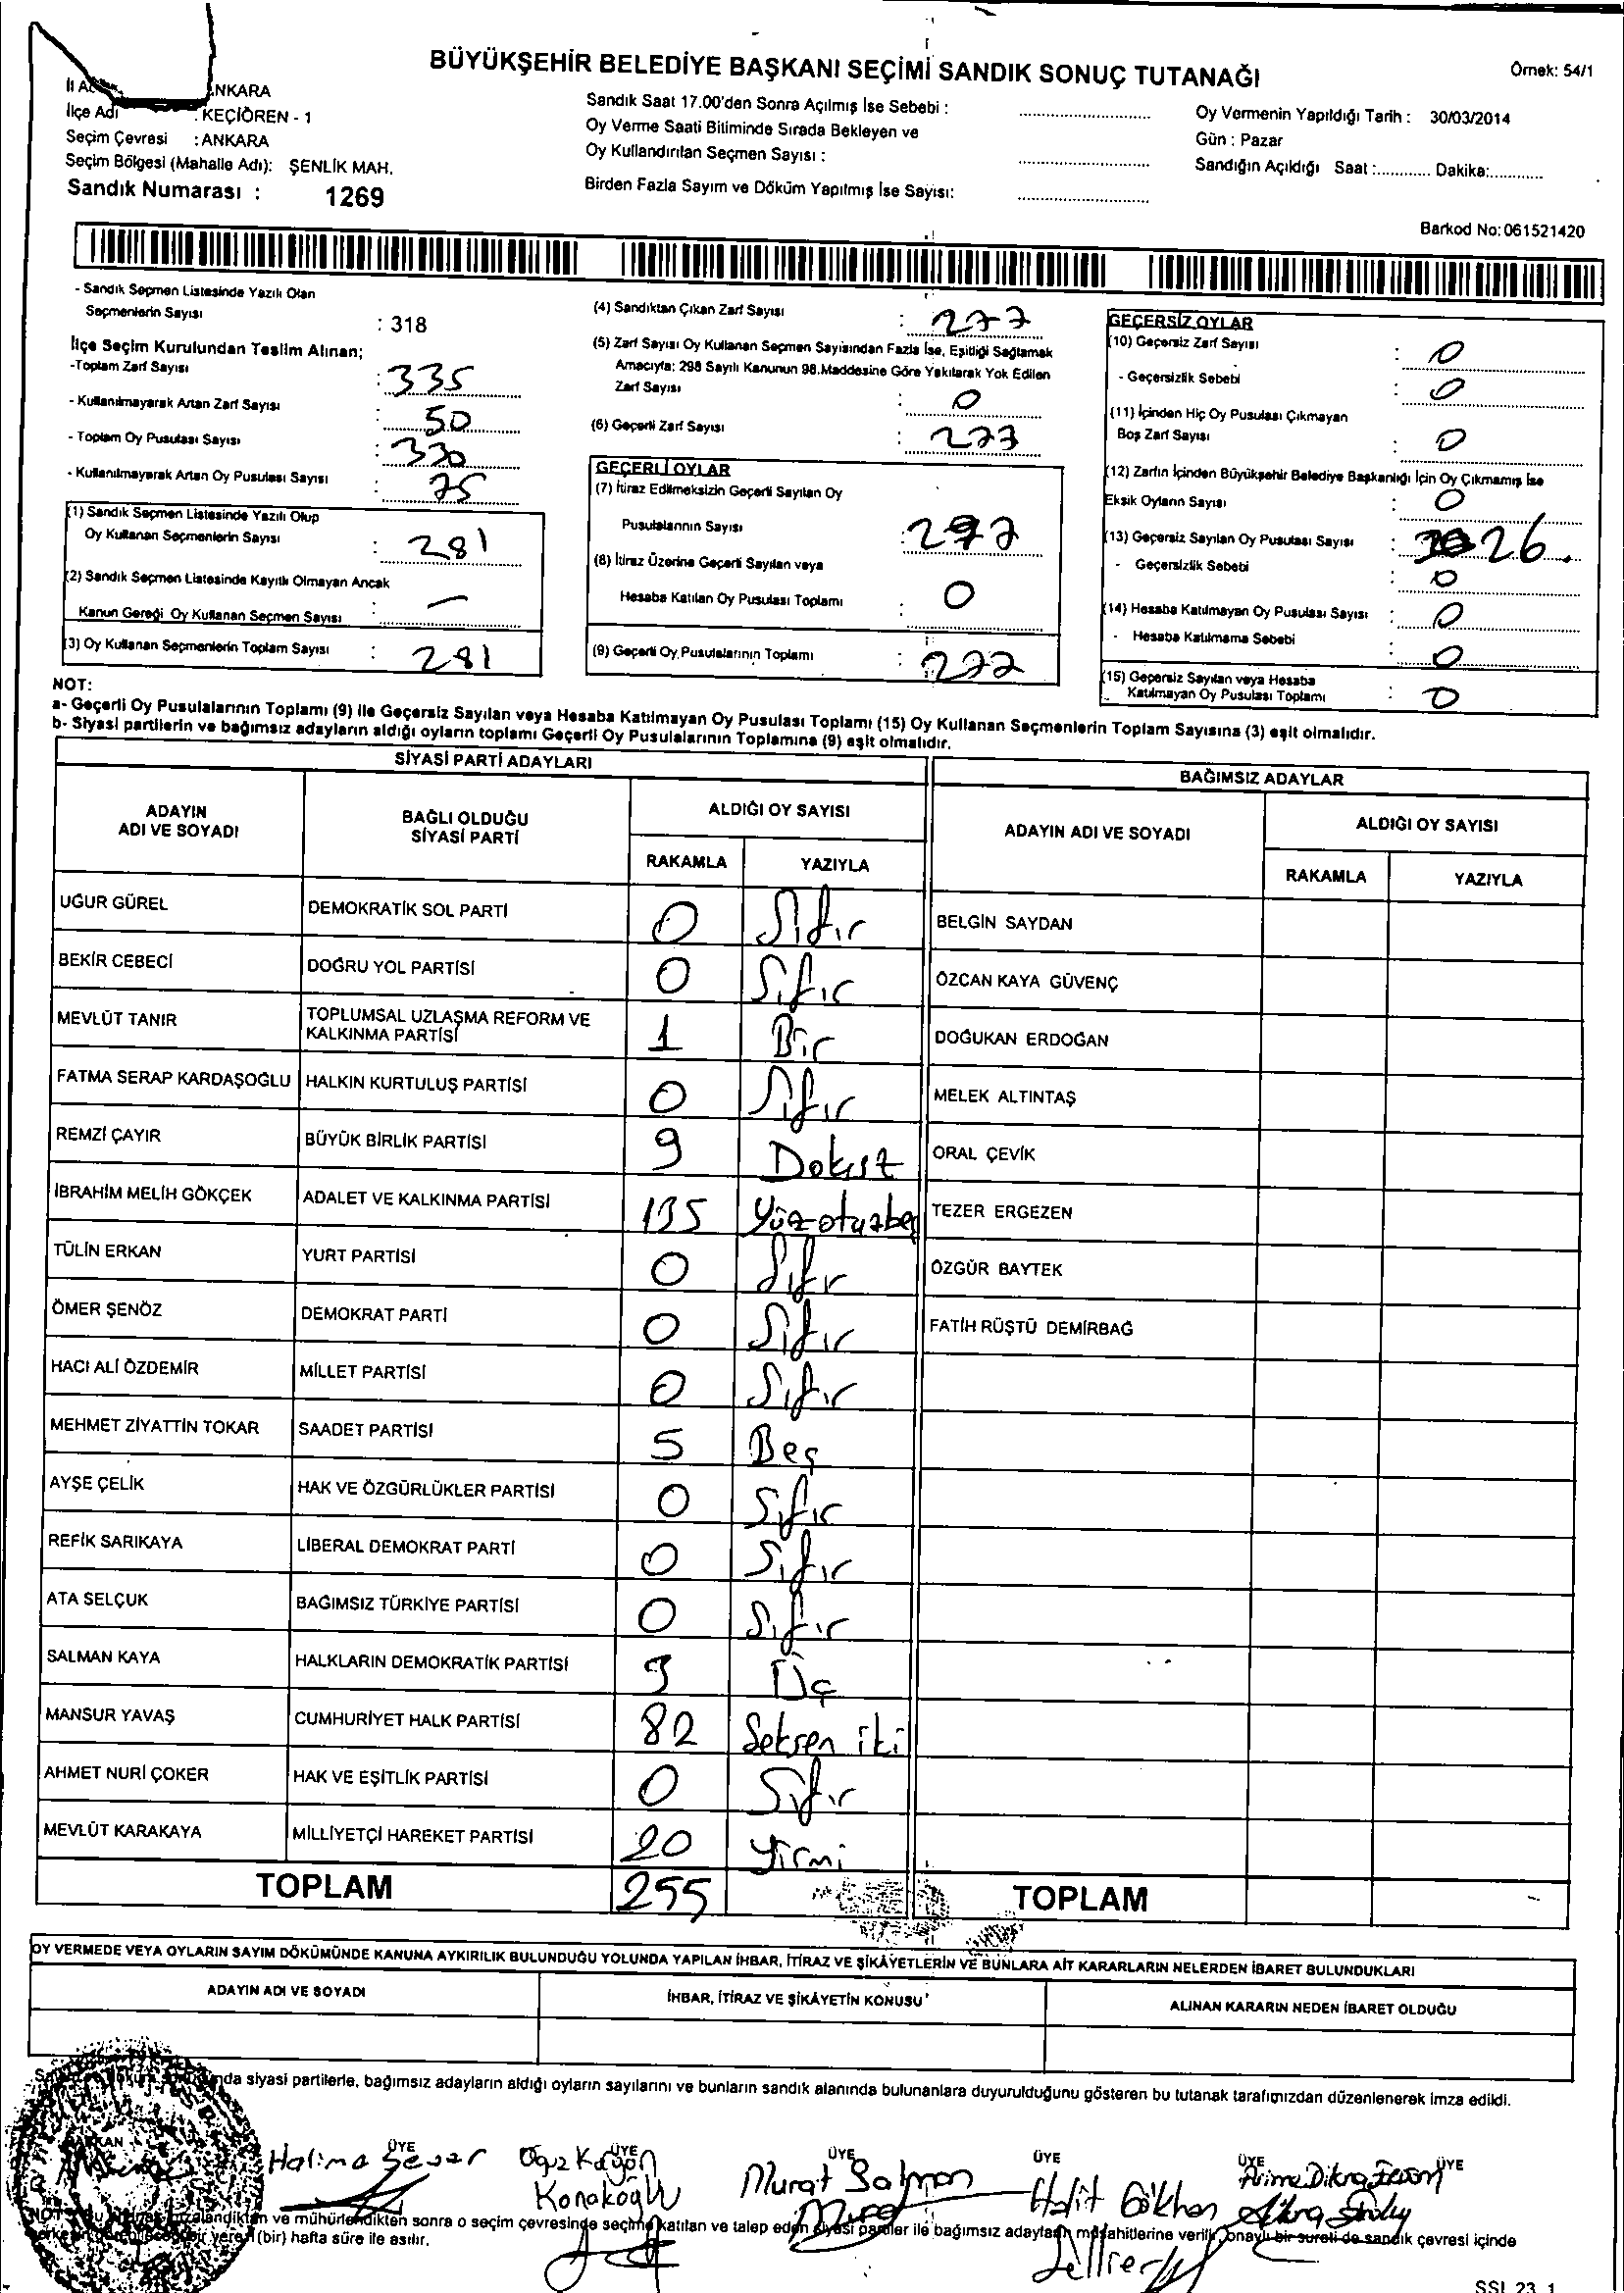 BÜYÜKŞEHİR BELEDİYE BAŞKANI SEÇİMİ SANDIK SONUÇ TUTANAĞI
Örnek: 54/1
NKARA
İlçe Adı : KEÇİÖREN - 1
Seçim Çevresi : ANKARA
Seçim Bölgesi (Mahalle Adı): ŞENLİK MAH.
Sandık Numarası : 1269
Sandık Saat 17.00'den Sonra Açılmış İse Sebebi :
Oy Verme Saati Bitiminde Sırada Bekleyen ve
Oy Kullandırılan Seçmen Sayısı :
Birden Fazla Sayım ve Döküm Yapılmış İse Sayısı:
Oy Vermenin Yapıldığı Tarih : 30/03/2014
Gün : Pazar
Sandığın Açıldığı Saat :............ Dakika:............
Barkod No: 061521420
- Sandık Seçmen Listesinde Yazılı Olan
Seçmenlerin Sayısı : 318
İlçe Seçim Kurulundan Teslim Alınan;
-Toplam Zarf Sayısı : 335
- Kullanılmayarak Artan Zarf Sayısı : 50
- Toplam Oy Pusulası Sayısı : 330
- Kullanılmayarak Artan Oy Pusulası Sayısı : 75
(1) Sandık Seçmen Listesinde Yazılı Olup
Oy Kullanan Seçmenlerin Sayısı : 281
(2) Sandık Seçmen Listesinde Kayıtlı Olmayan Ancak
Kanun Gereği Oy Kullanan Seçmen Sayısı : —
(3) Oy Kullanan Seçmenlerin Toplam Sayısı : 281
(4) Sandıktan Çıkan Zarf Sayısı : 277
(5) Zarf Sayısı Oy Kullanan Seçmen Sayısından Fazla İse, Eşitliği Sağlamak
Amacıyla; 298 Sayılı Kanunun 98.Maddesine Göre Yakılarak Yok Edilen
Zarf Sayısı : 0
(6) Geçerli Zarf Sayısı : 277
GEÇERLİ OYLAR
(7) İtiraz Edilmeksizin Geçerli Sayılan Oy
Pusulalarının Sayısı : 277
(8) İtiraz Üzerine Geçerli Sayılan veya
Hesaba Katılan Oy Pusulası Toplamı : 0
(9) Geçerli Oy Pusulalarının Toplamı : 277
GEÇERSİZ OYLAR
(10) Geçersiz Zarf Sayısı : 0
- Geçersizlik Sebebi : 0
(11) İçinden Hiç Oy Pusulası Çıkmayan
Boş Zarf Sayısı : 0
(12) Zarfın İçinden Büyükşehir Belediye Başkanlığı İçin Oy Çıkmamış İse
Eksik Oyların Sayısı : 0
(13) Geçersiz Sayılan Oy Pusulası Sayısı : 26.
- Geçersizlik Sebebi : 0
(14) Hesaba Katılmayan Oy Pusulası Sayısı : 0
- Hesaba Katılmama Sebebi : 0
(15) Geçersiz Sayılan veya Hesaba
Katılmayan Oy Pusulası Toplamı : 0
NOT:
a- Geçerli Oy Pusulalarının Toplamı (9) ile Geçersiz Sayılan veya Hesaba Katılmayan Oy Pusulası Toplamı (15) Oy Kullanan Seçmenlerin Toplam Sayısına (3) eşit olmalıdır.
b- Siyasi partilerin ve bağımsız adayların aldığı oyların toplamı Geçerli Oy Pusulalarının Toplamına (9) eşit olmalıdır.
SİYASİ PARTİ ADAYLARI
BAĞIMSIZ ADAYLAR
ADAYIN ADI VE SOYADI
BAĞLI OLDUĞU SİYASİ PARTİ
ALDIĞI OY SAYISI
RAKAMLA YAZIYLA
ADAYIN ADI VE SOYADI
ALDIĞI OY SAYISI
RAKAMLA YAZIYLA
UĞUR GÜREL DEMOKRATİK SOL PARTİ 0 Sıfır BELGİN SAYDAN
BEKİR CEBECİ DOĞRU YOL PARTİSİ 0 Sıfır ÖZCAN KAYA GÜVENÇ
MEVLÜT TANIR TOPLUMSAL UZLAŞMA REFORM VE KALKINMA PARTİSİ 1 Bir DOĞUKAN ERDOĞAN
FATMA SERAP KARDAŞOĞLU HALKIN KURTULUŞ PARTİSİ 0 Sıfır MELEK ALTINTAŞ
REMZİ ÇAYIR BÜYÜK BİRLİK PARTİSİ 9 Dokuz ORAL ÇEVİK
İBRAHİM MELİH GÖKÇEK ADALET VE KALKINMA PARTİSİ 135 Yüz otuzbeş TEZER ERGEZEN
TÜLİN ERKAN YURT PARTİSİ 0 Sıfır ÖZGÜR BAYTEK
ÖMER ŞENÖZ DEMOKRAT PARTİ 0 Sıfır FATİH RÜŞTÜ DEMİRBAĞ
HACI ALİ ÖZDEMİR MİLLET PARTİSİ 0 Sıfır
MEHMET ZİYATTİN TOKAR SAADET PARTİSİ 5 Beş
AYŞE ÇELİK HAK VE ÖZGÜRLÜKLER PARTİSİ 0 Sıfır
REFİK SARIKAYA LİBERAL DEMOKRAT PARTİ 0 Sıfır
ATA SELÇUK BAĞIMSIZ TÜRKİYE PARTİSİ 0 Sıfır
SALMAN KAYA HALKLARIN DEMOKRATİK PARTİSİ 3 Üç
MANSUR YAVAŞ CUMHURİYET HALK PARTİSİ 82 Seksen iki
AHMET NURİ ÇOKER HAK VE EŞİTLİK PARTİSİ 0 Sıfır
MEVLÜT KARAKAYA MİLLİYETÇİ HAREKET PARTİSİ 20 Yirmi
TOPLAM 255 TOPLAM
OY VERMEDE VEYA OYLARIN SAYIM DÖKÜMÜNDE KANUNA AYKIRILIK BULUNDUĞU YOLUNDA YAPILAN İHBAR, İTİRAZ VE ŞİKÂYETLERİN VE BUNLARA AİT KARARLARIN NELERDEN İBARET BULUNDUKLARI
ADAYIN ADI VE SOYADI İHBAR, İTİRAZ VE ŞİKÂYETİN KONUSU ALINAN KARARIN NEDEN İBARET OLDUĞU
siyasi partilerle, bağımsız adayların aldığı oyların sayılarını ve bunların sandık alanında bulunanlara duyurulduğunu gösteren bu tutanak tarafımızdan düzenlenerek imza edildi.
ÜYE ÜYE ÜYE ÜYE ÜYE ÜYE
Halime
Oğuz Kağan
Konakoğlu
Murat Salman
Halit Gökhan
ve mühürlendikten sonra o seçim çevresinde seçime katılan ve talep eden siyasi partiler ile bağımsız adayların müşahitlerine verilir, onaylı bir sureti de sandık çevresi içinde
(bir) hafta süre ile asılır.
SSL 23 1